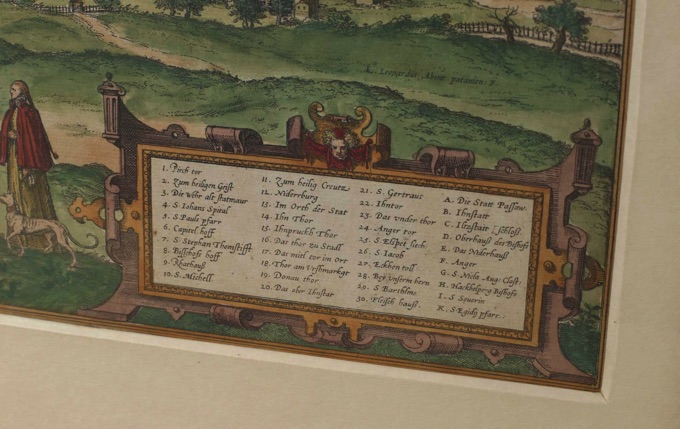 1. Pirch tor
2. Zum heiligen Geist
3. Die wehr als statmaur
4. S. Iohans Spital
5. S Pauls pfarr
6. Capitel hoff
7. S. Stephan Thomstifft
8. Bisschofs hoff
9. Rhathauß
10. S. Michell
11. Zum heilig Creutz
12. Niderrburg
13. Im Orth der Stat
14. Ihn Thor
15. Ihnpruckh Thor
16. Das thor zu Stadl
17. Das mitl tor im Orr
18. Thor am Vyshmarkht
19. Donau thor
20. Das ober Ihnstat
21. S. Gertraut
22. Ihntor
23. Das vnder thor
24. Anger tor
25. S. Elspet siech
26. S. Iacob
27. Eichken toll
28. Bey vnserm hern
29. S Barthlme
30. Fleisch hauß
A. Die Statt Passaw
B. Ihnstatt
C. Iltzstatt schloß
D. Oberhauß des Bishofs
E. Das Niderhauß
F. Anger
G. S Nicla Aug: Clost.
H. Hackhelperg Bishofs
I. S Seuerin
K. S Egidy pfarr